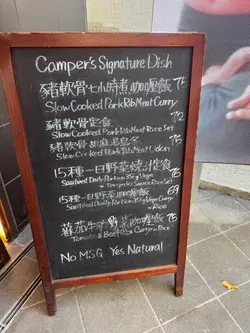 Camper's Signature Dish
豬軟骨七小時煮咖喱飯 74
Slow Cooked Pork Rib Meat Curry
豬軟骨定食 72
Slow Cooked Pork Rib Meat Rice Set
豬軟骨烏冬 75
Slow Cooked Pork Rib Meat Udon
15種一日野菜燒汁定食 76
Satisfied Daily Portion 35g Vegan
Teriyaki Sauce Rice Set
15種一日野菜咖喱飯 69
Satisfied Daily Portion 35g Vegan Curry
Rice
蕃茄牛肋野菜咖喱飯 75
Tomato & Beef Curry Rice
No MSG Yes Natural